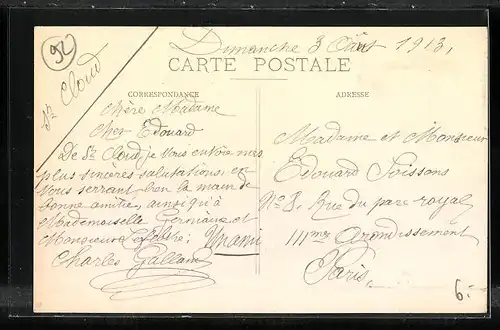 92
St Cloud
Dimanche 3 Août 1913.
CARTE POSTALE
CORRESPONDANCE
Chère Madame
Cher Edouard
De St Cloud je vous envoie mes
plus sincères salutations, en
vous serrant bien la main de
bonne amitié, ainsi qu'à
Mademoiselle Germaine et
Monsieur
Un ami
Charles Galland
ADRESSE
Madame et Monsieur
Edouard Poissons
No 8, Rue du parc royal
IIIme Arondissement
Paris.
6.-